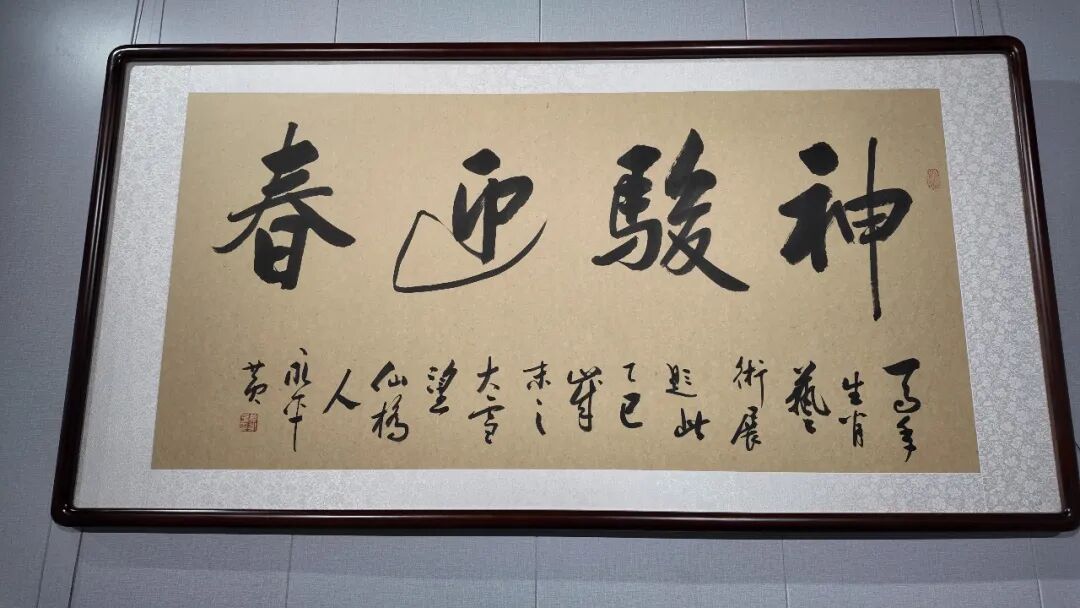 神駿迎春
馬年
生肖
藝
術展
題此
乙巳
歲
末之
大雪
望
仙橋
人
永平
黄